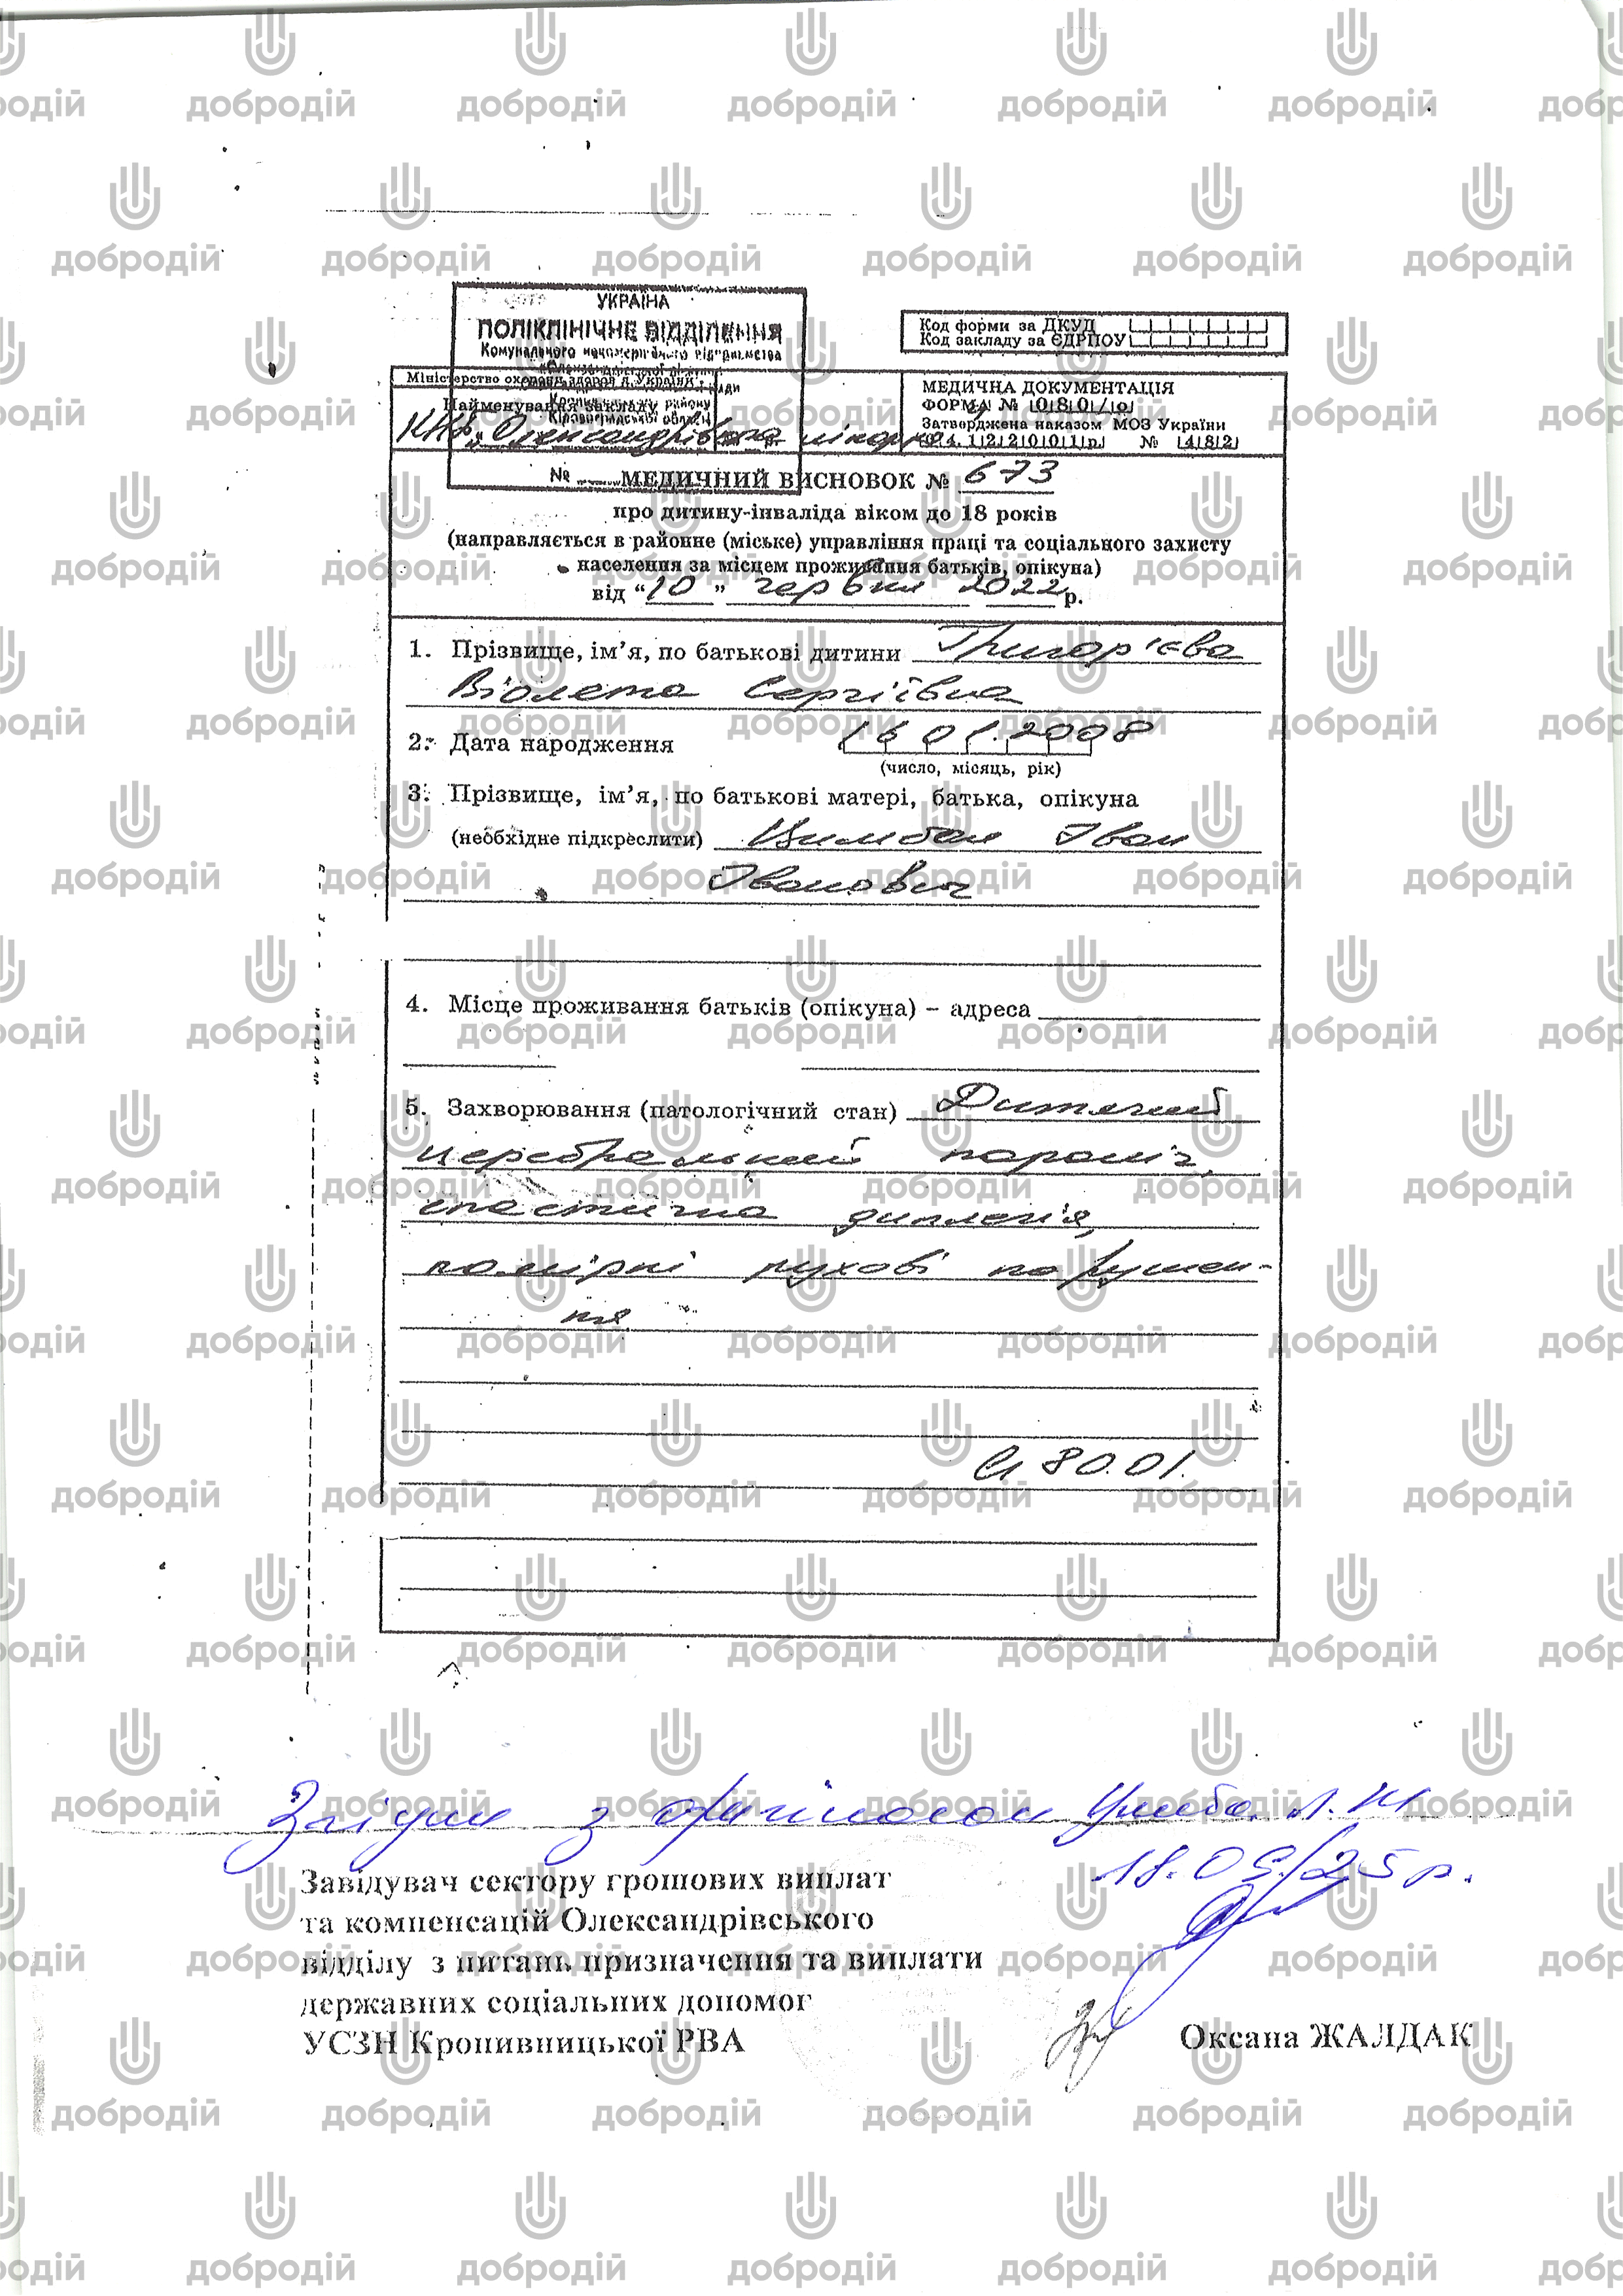 УКРАЇНА
ПОЛІКЛІНІЧНЕ ВІДДІЛЕННЯ
Комунального некомерційного підприємства
районy
Кіровоградської області
№
Код форми за ДКУД
Код закладу за ЄДРПОУ
Міністерство охорони здоров'я України
Найменування закладу
КНП „Олександрівська лікарня
МЕДИЧНА ДОКУМЕНТАЦІЯ
ФОРМА № 080/о
Затверджена наказом МОЗ України
04.12.2001р. № 482
МЕДИЧНИЙ ВИСНОВОК № 673
про дитину-інваліда віком до 18 років
(направляється в районне (міське) управління праці та соціального захисту
населення за місцем проживання батьків, опікуна)
від “10” червня 2022 р.
1. Прізвище, ім’я, по батькові дитини Григор'єва
Віолета Сергіївна
2. Дата народження 16 01.2008
(число, місяць, рік)
3. Прізвище, ім’я, по батькові матері, батька, опікуна
(необхідне підкреслити) Цимбал Іван
Іванович
4. Місце проживання батьків (опікуна) – адреса
5. Захворювання (патологічний стан) Дитячий
церебральний параліч,
спастична диплегія,
помірні рухові порушен-
ня
G 80.01.
Згідно з оригіналом
18.09.25р.
Завідувач сектору грошових виплат
та компенсацій Олександрівського
відділу з питань призначення та виплати
державних соціальних допомог
УСЗН Кропивницької РВА
Оксана ЖАЛДАК
добродій